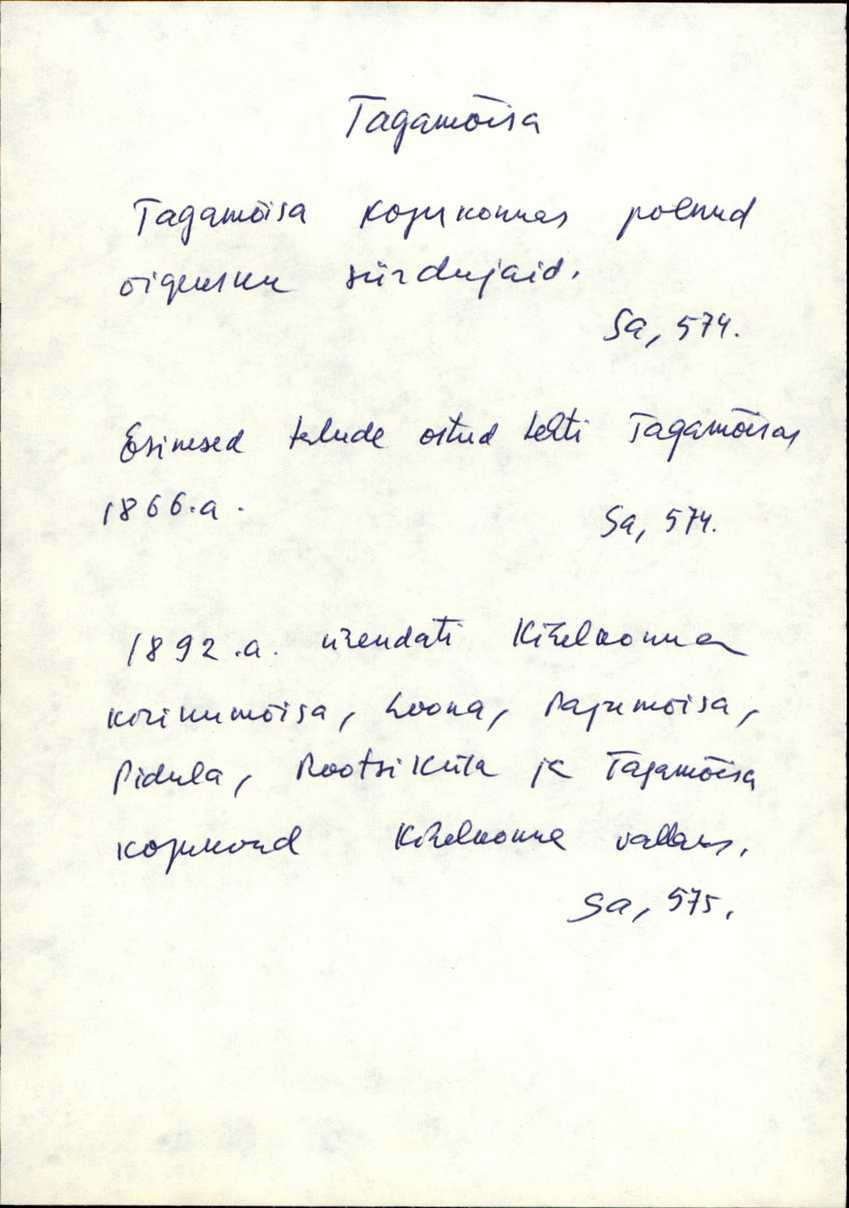 Tagamõisa
Tagamõisa kogukonnas polnud
õigeusku siirdujaid.
Sa, 574.
Esimesed talude ostud tehti Tagamõisas
1866.a.
Sa, 574.
1892.a. ühendati Kihelkonna
kirikumõisa, Loona, Pajumõisa,
Pidula, Rootsiküla ja Tagamõisa
kogukond Kihelkonna vallaks.
Sa, 575.